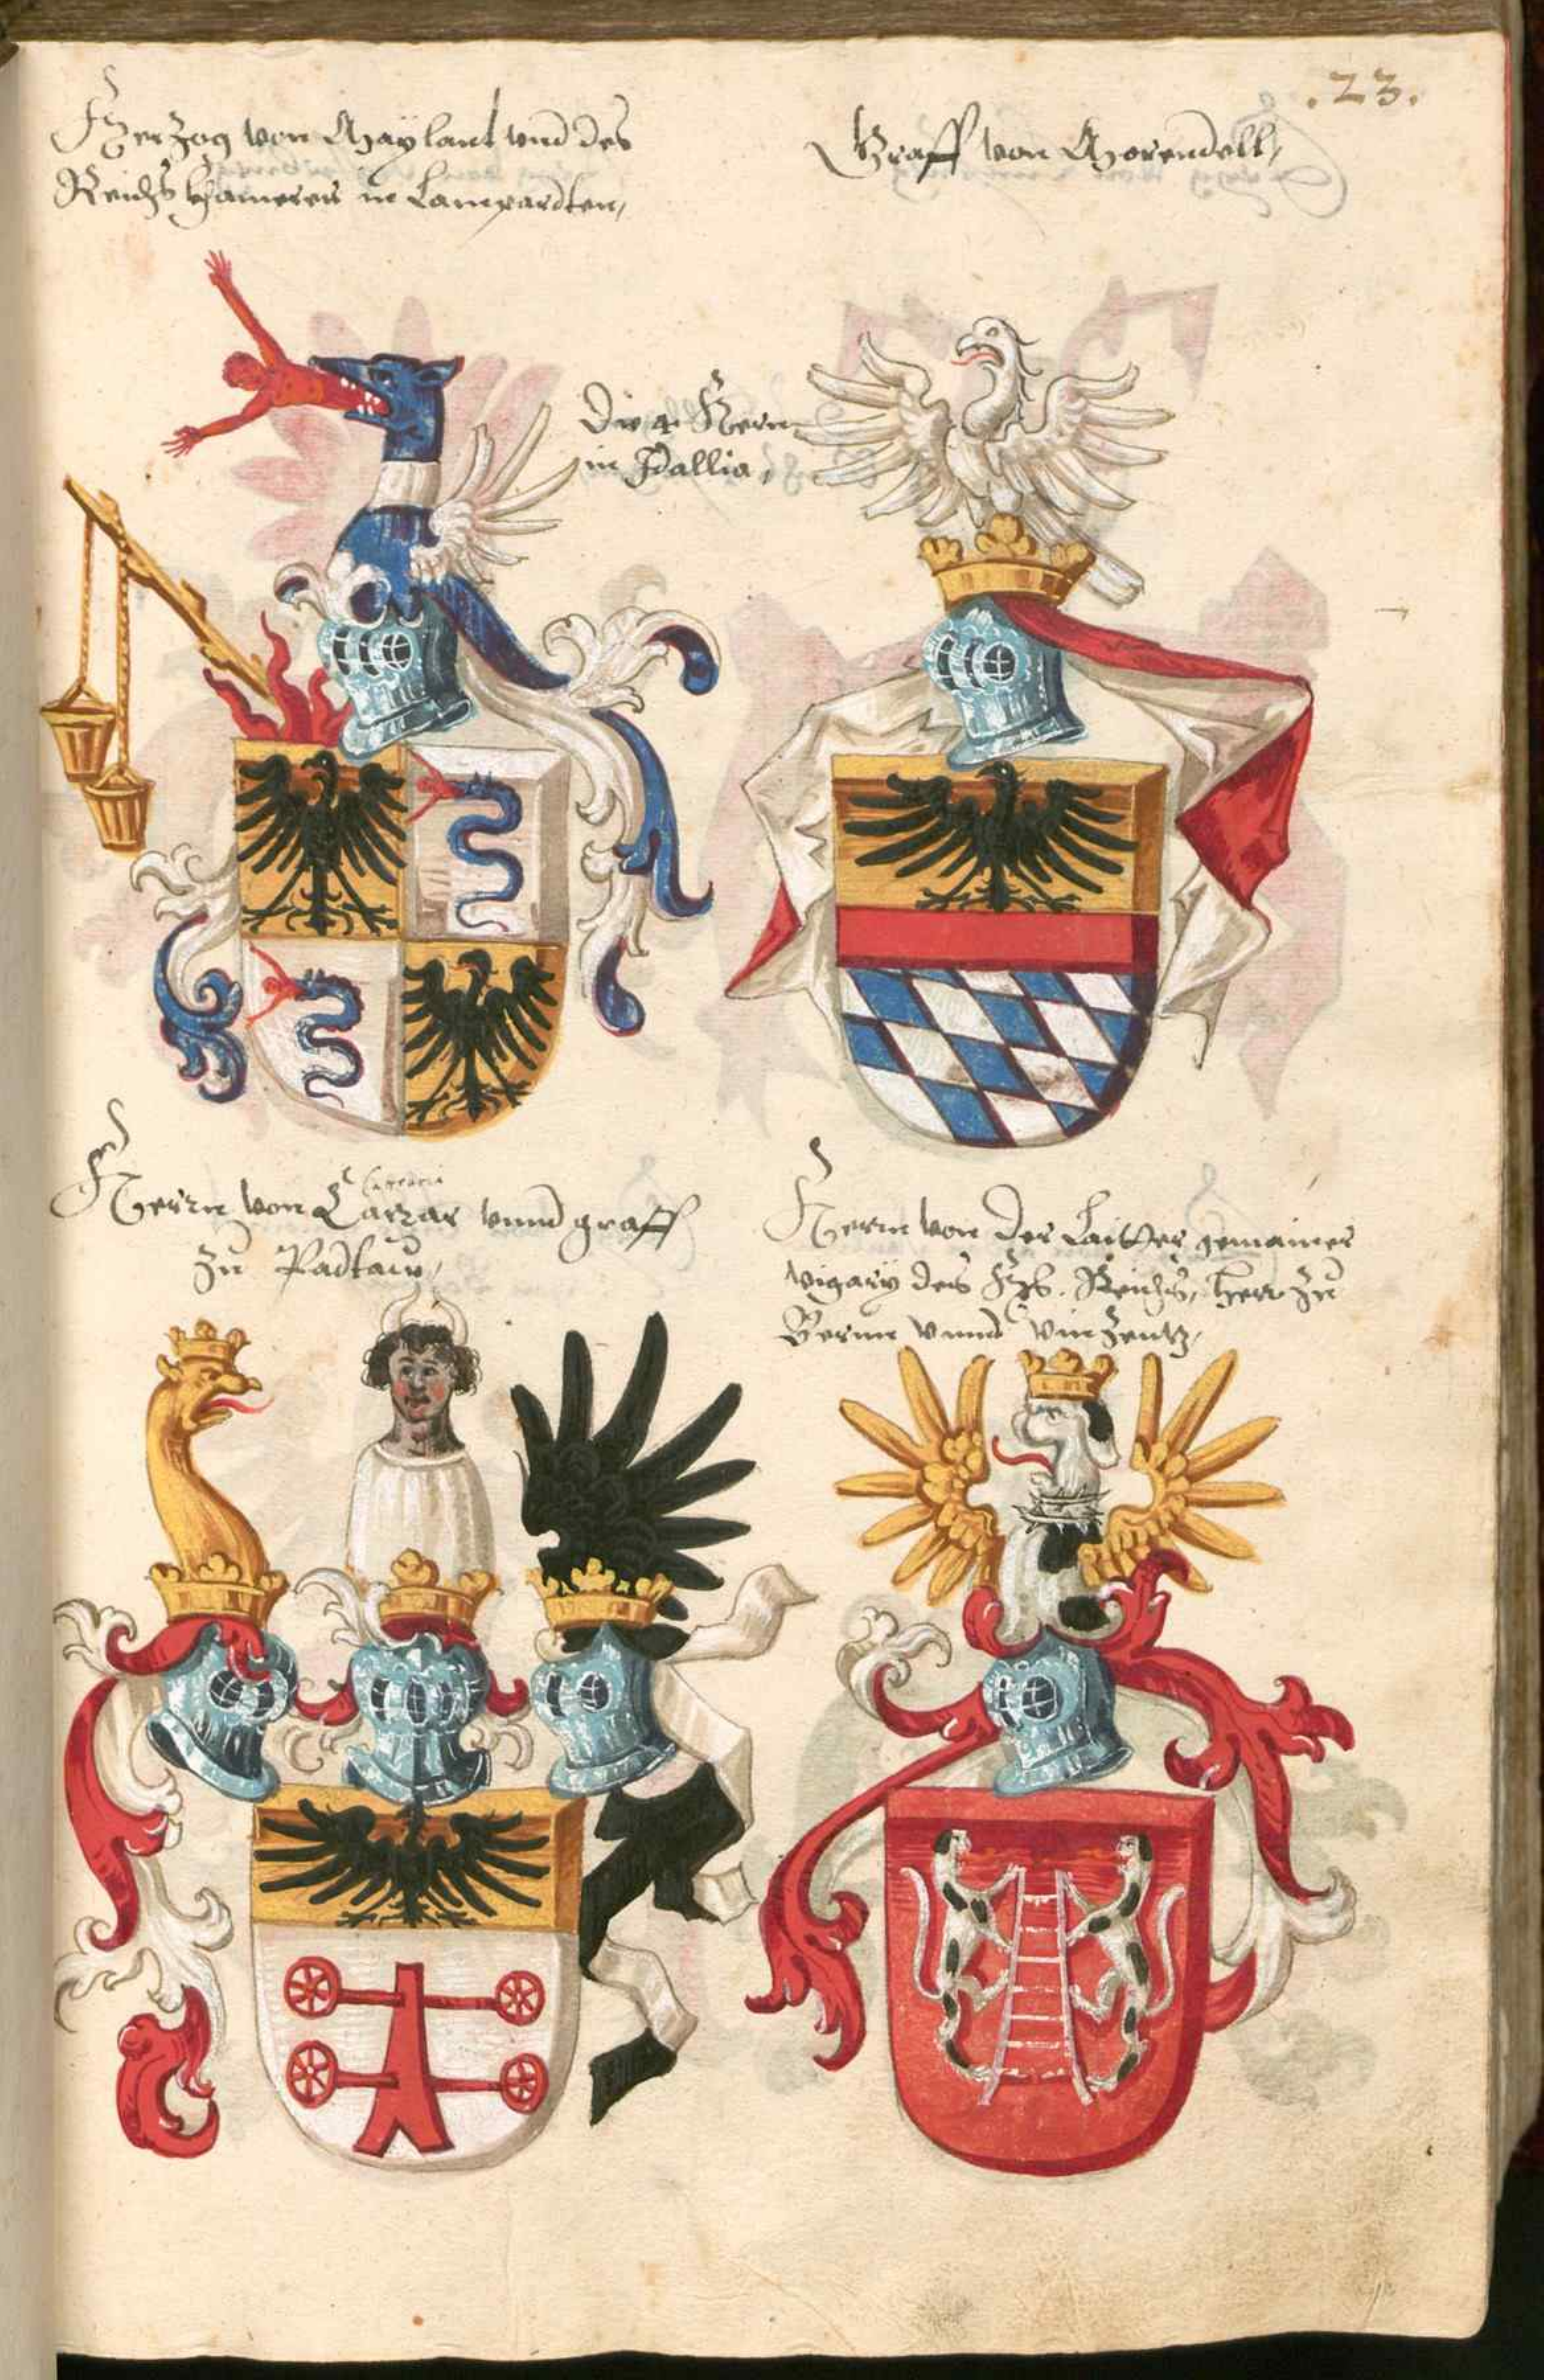 .23.
Hertzog von Maÿlant vnd des
Reichs Chamerer in Lampardten,
Graff von Morendell,
Die 4 Herrn
in Itallia,
Herrn von Carrar vnnd graff
zu Padtaw,
Herrn von der Laitter gemainer
vigarÿ des Reichs, herr zu
Bernn vnnd vinzentz,